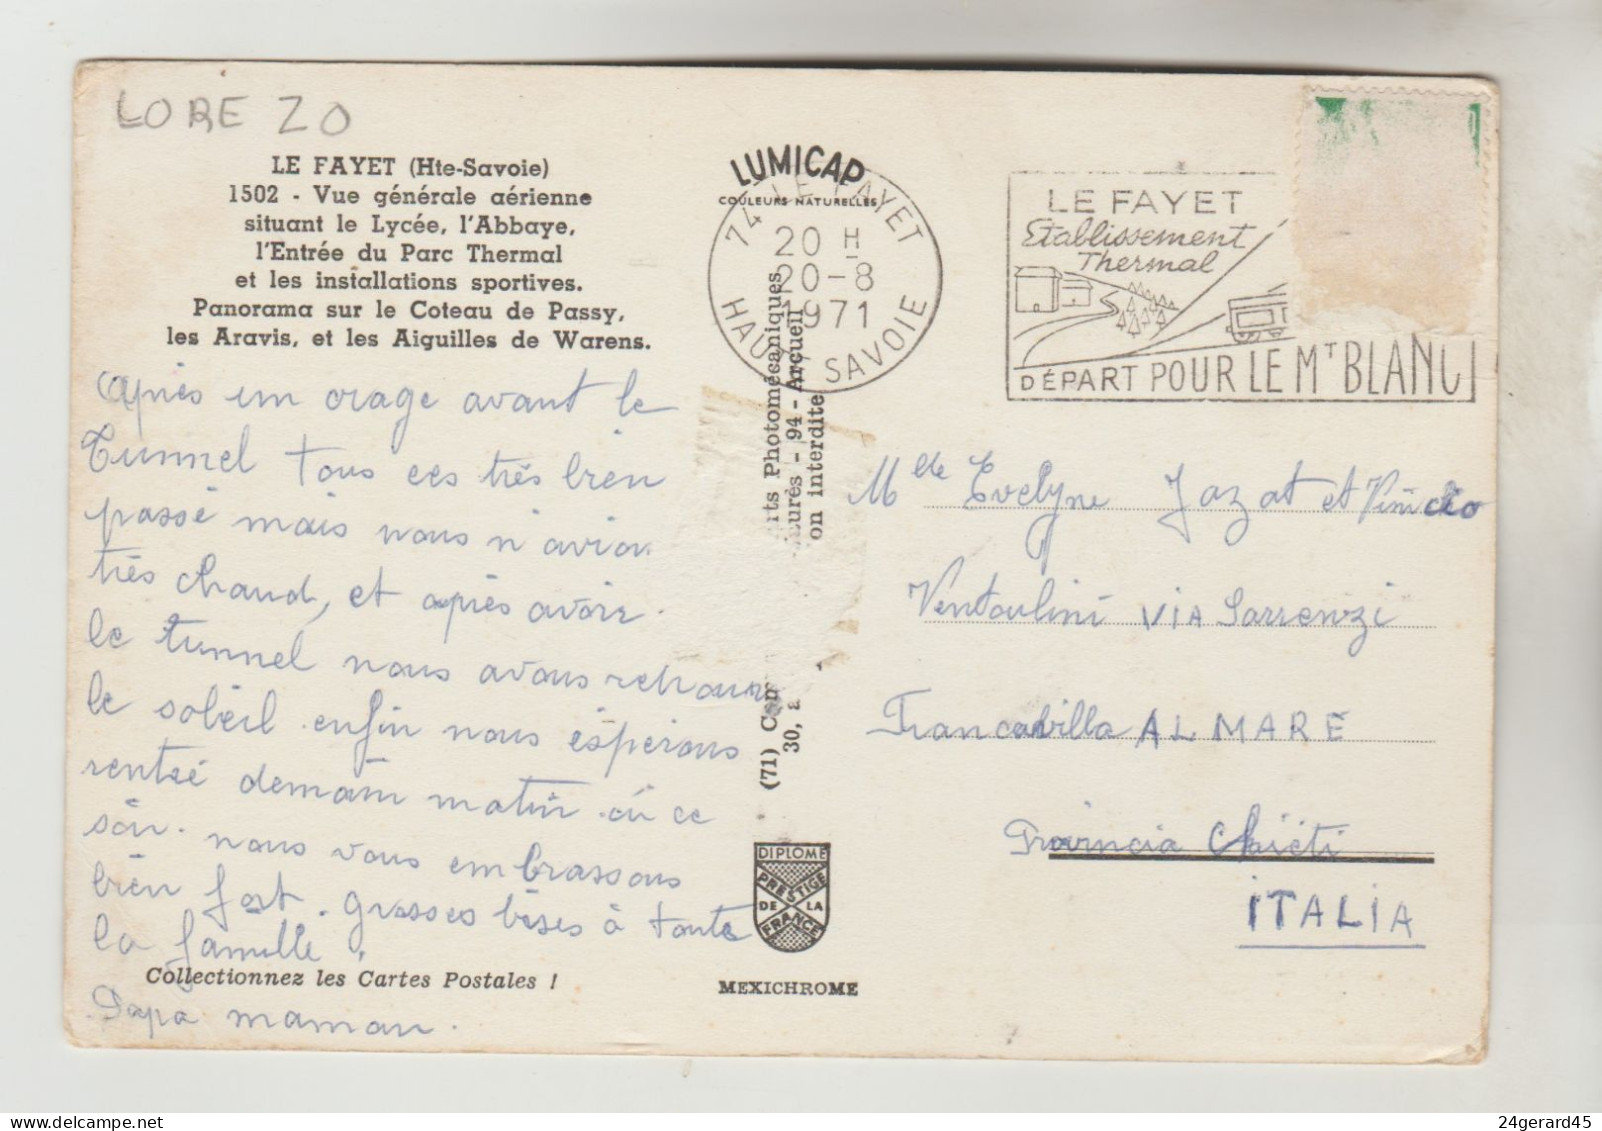 LORE ZO
LE FAYET (Hte-Savoie)
1502 - Vue générale aérienne
situant le Lycée, l'Abbaye,
l'Entrée du Parc Thermal
et les installations sportives.
Panorama sur le Coteau de Passy,
les Aravis, et les Aiguilles de Warens.
après un orage avant le
Tunnel tous ces très bien
passé mais nous n'avion
très chaud, et après avoir
le tunnel nous avons retrouv
le soleil enfin nous éspérons
rentré demain matin ou ce
soir. nous vous embrassons
bien fort. grosses bises à toute
la famille.
Collectionnez les Cartes Postales !
Papa maman.
LUMICAP
COULEURS NATURELLES
74 LE FAYET
20 H
20-8
1971
HAUTE SAVOIE
rts Photomécaniques
94 - Arcueil
on interdite
(71) Com
30, a
DIPLOME
PRESTIGE
DE LA
FRANCE
MEXICHROME
LE FAYET
Etablissement
Thermal
DÉPART POUR LE MT BLANC
Mlle Evelyne Jazat et Vinicio
Ventoulini VIA Sarrenzi
Francavilla AL MARE
Provincia Chiéti
ITALIA
24gerard45